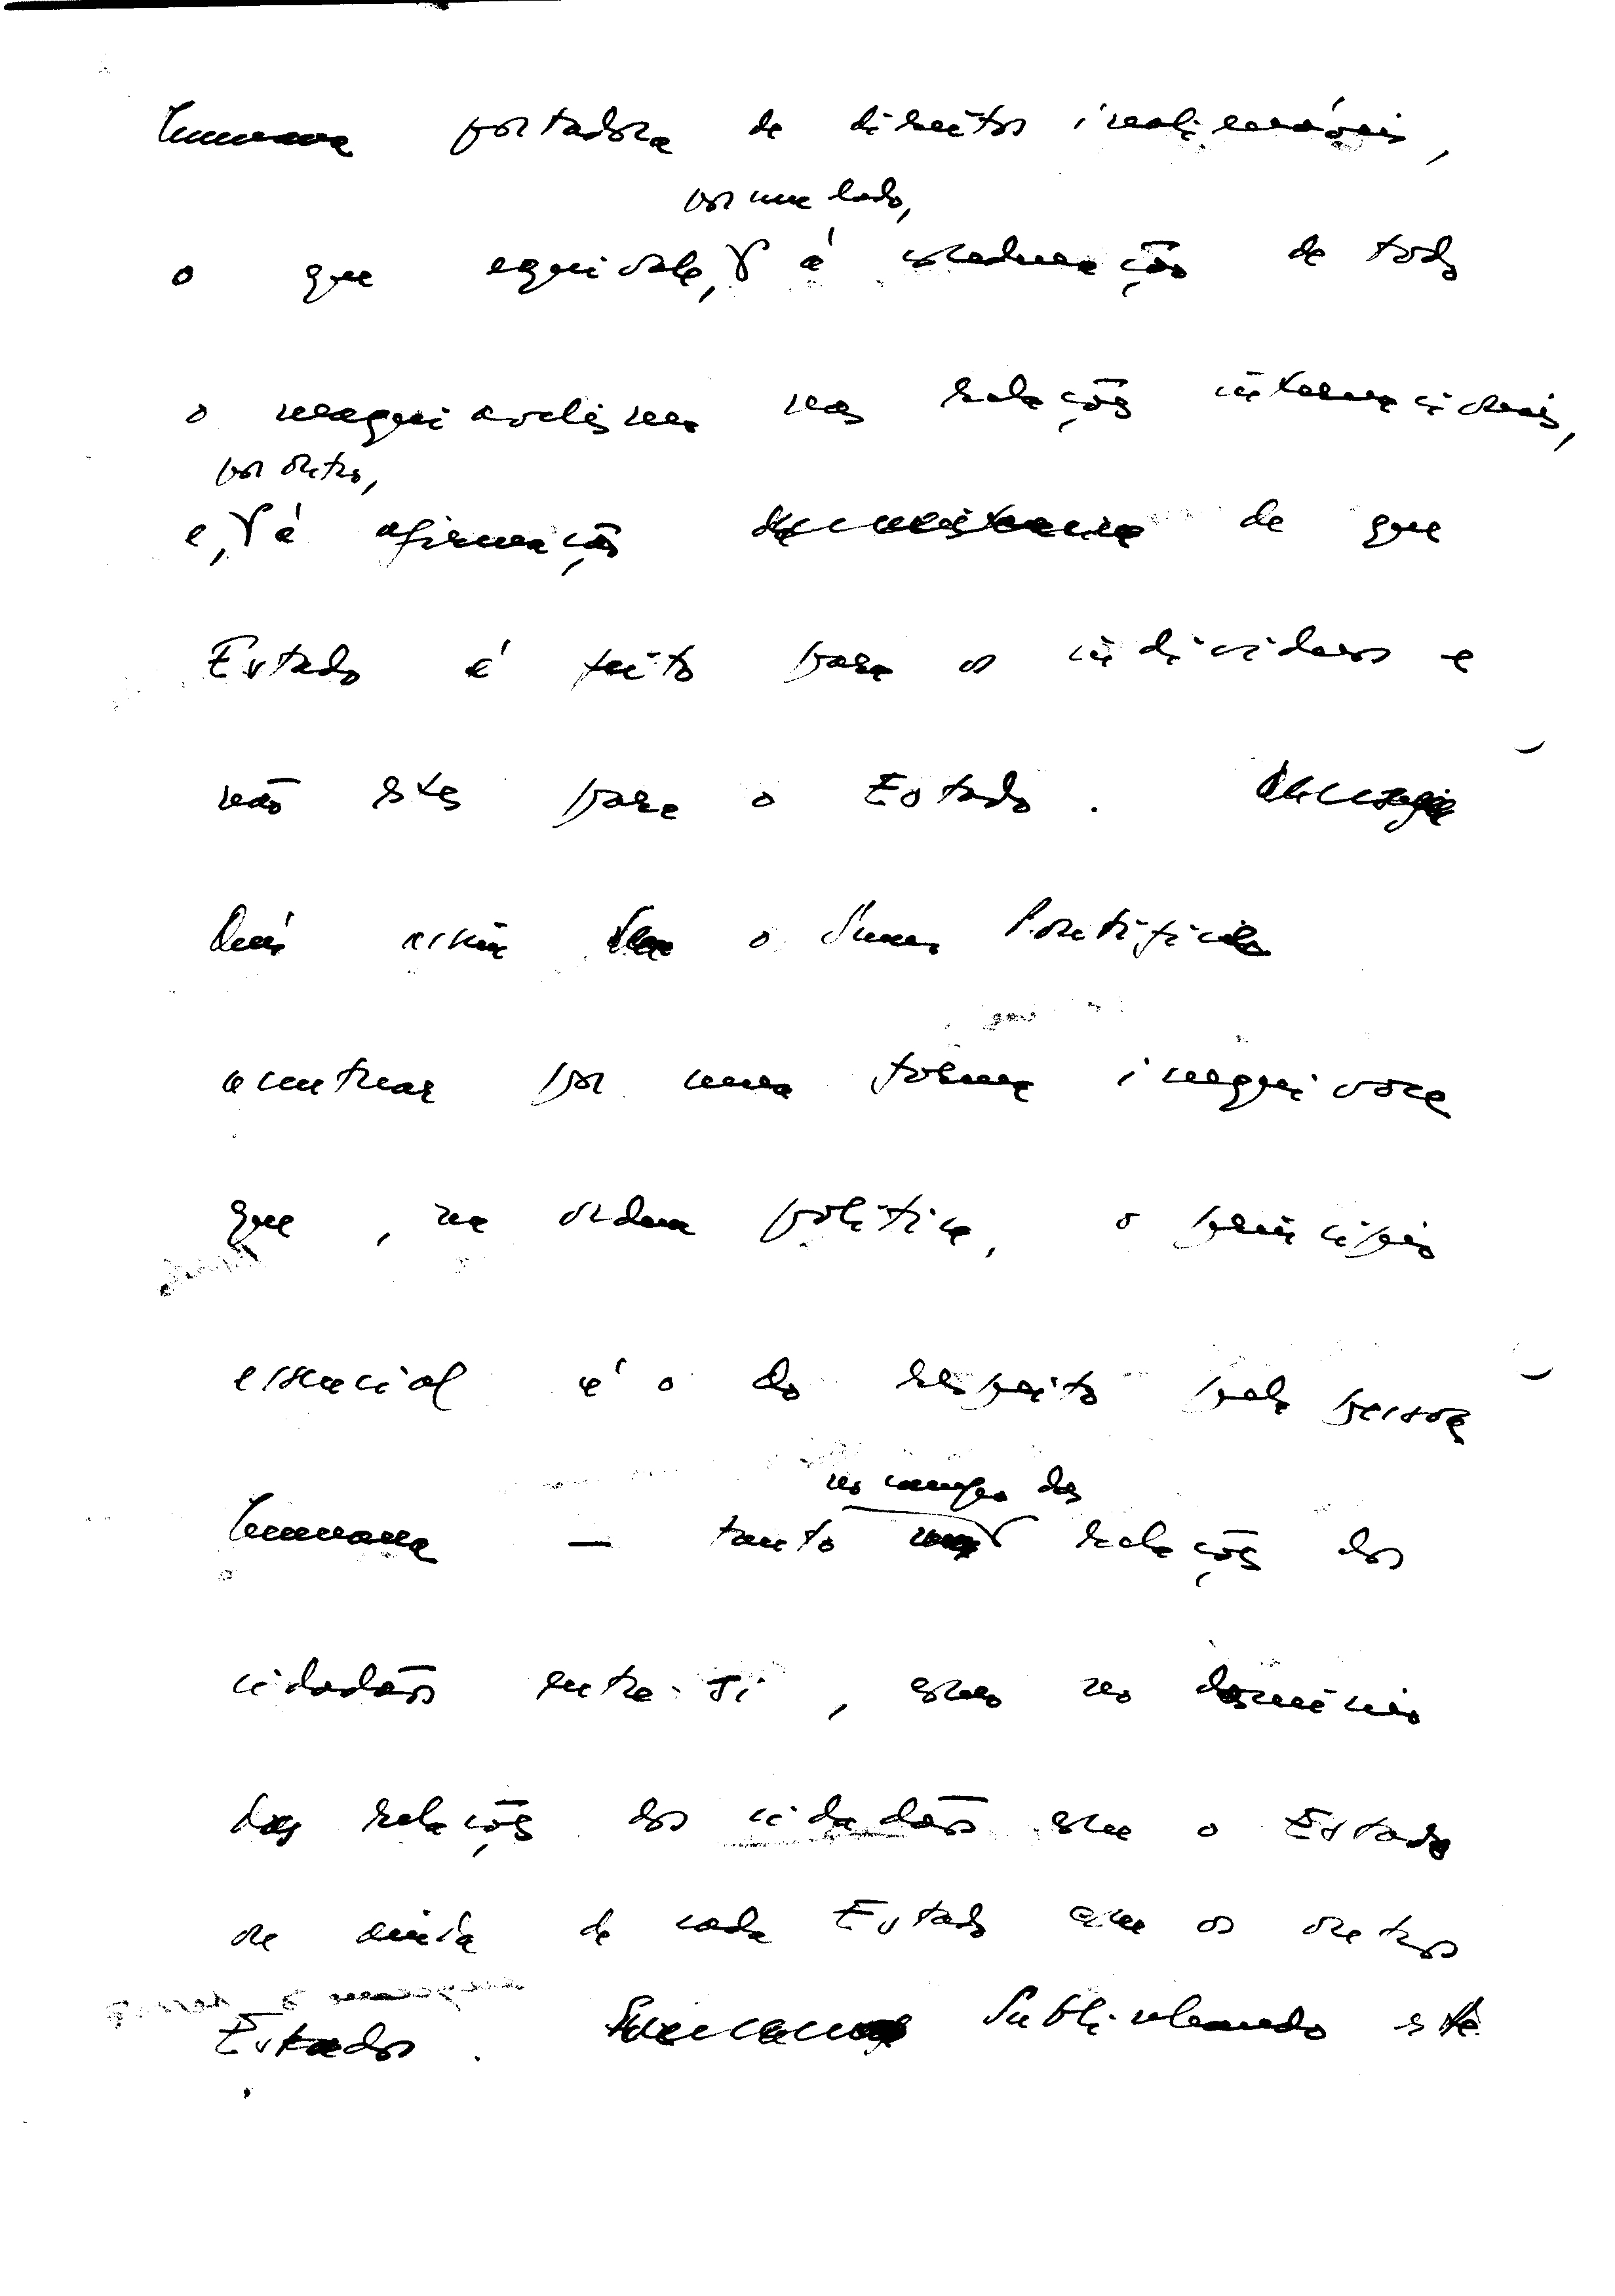 humana portadora de direitos inalienáveis,
por um lado,
o que equivale, à condenação de todo
o maquiavelismo nas relações internacionais,
por outro,
e, à afirmação de que
Estado é feito para os indivíduos e
não estes para o Estado.
Quis assim o Sumo Pontífice
acentuar por uma forma inequívoca
que, na ordem política, o princípio
essencial é o do respeito pela pessoa
no campo das
humana — tanto relações dos
cidadãos entre si, como no domínio
das relações dos cidadãos com o Estado
ou ainda de cada Estado com os outros
Estados. Sublinhando este